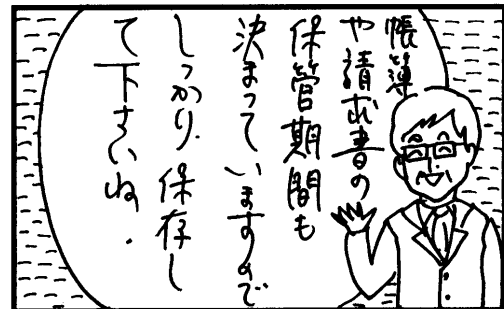 帳簿
や請求書の
保管期間も
決まっていますので
しっかり保存し
て下さいね.